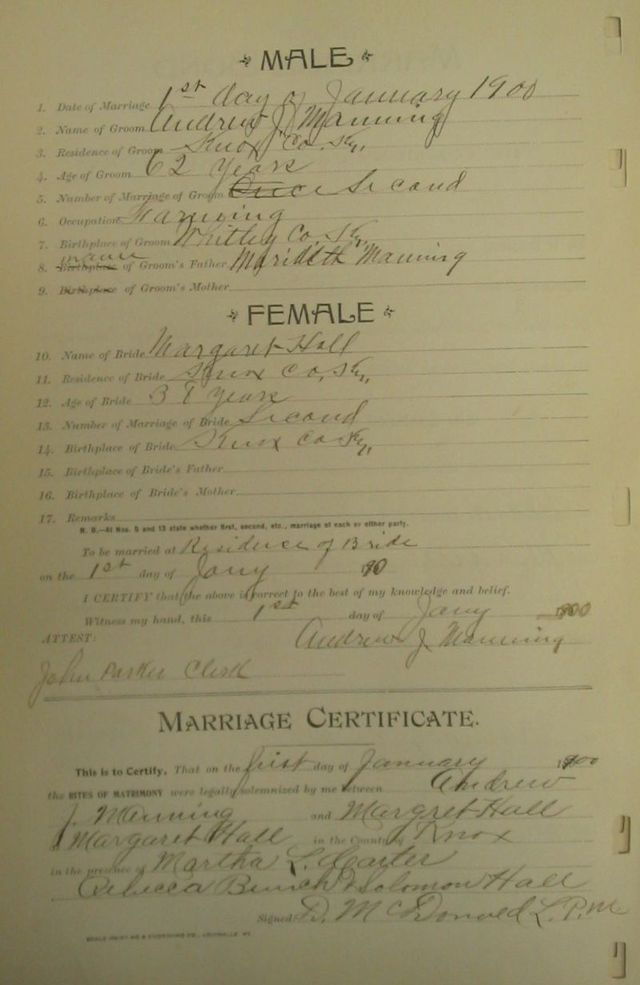 MALE
1. Date of Marriage 1st day of January 1900
2. Name of Groom Andrew J Manning
3. Residence of Groom Knox Co, Ky,
4. Age of Groom 62 years
5. Number of Marriage of Groom Once Second
6. Occupation Farming
7. Birthplace of Groom Whitley Co, Ky,
8. Birthplace name of Groom's Father Merideth Manning
9. Birthplace of Groom's Mother
FEMALE
10. Name of Bride Margaret Hall
11. Residence of Bride Knox Co, Ky,
12. Age of Bride 37 years
13. Number of Marriage of Bride Second
14. Birthplace of Bride Knox Co Ky,
15. Birthplace of Bride's Father
16. Birthplace of Bride's Mother
17. Remarks
N. B.—At Nos. 5 and 13 state whether first, second, etc., marriage of each or either party.
To be married at Residence of Bride
on the 1st day of Jany 190
I CERTIFY that the above is correct to the best of my knowledge and belief.
Witness my hand, this 1st day of Jany 1900
ATTEST: Andrew J Manning
John Parker Clerk
MARRIAGE CERTIFICATE.
This is to Certify, That on the first day of January 1900
the RITES OF MATRIMONY were legally solemnized by me between Andrew
J. Manning and Margret Hall
Margaret Hall in the County of Knox
in the presence of Martha L.
Rebecca Bunch & Solomon Hall
Signed D. McDonald L. P. M